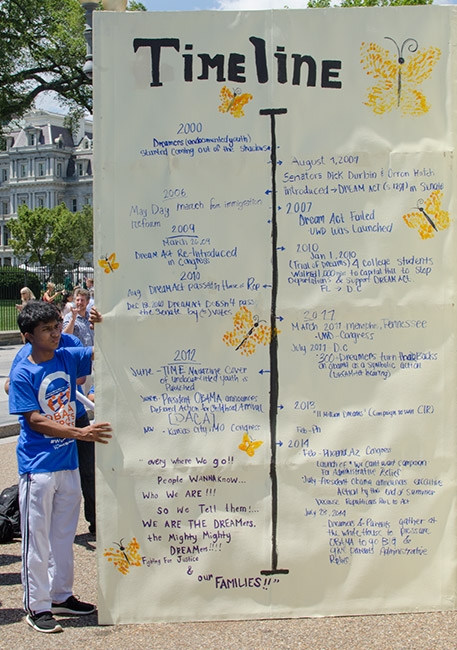 Timeline
2000
Dreamers (undocumented youth)
Started coming out of the shadows
2006
May Day march for immigration
reform
2009
March 26, 09
Dream Act Re-Introduced
in Congress
2010
May Dream Act passes in House of Rep
Dec 18, 2010 Dream Act Dussn't pass
the Senate by 5 votes
2012
June - TIME Magazine Cover
of undocumented youth is
Published
President OBAMA announces
Deferred Action for Childhood Arrival
(DACA)
Nov - Kansas City, MO Congress
"every where We go!!
People WANNA Know...
Who We ARE!!!
So We Tell them!...
We ARE THE DREAMers..
the Mighty Mighty
DREAMers!!!!
Fighting For Justice
& our FAMILIES!!"
August 1, 2001
Senators Dick Durbin & Orrin Hatch
Introduced → DREAM Act (S. 1291) in Senate
2007
Dream Act Failed
UWD was Launched
2010
Jan 1, 2010
(Trail of Dreams) 4 college students
Walked 1,500 mi to Capital that to Stop
Deportations & Support DREAM Act
FL → D.C
2011
March 2011 Memphis, Tennessee
-UWD-Congress
July 2011 D.C
-300-Dreamers turn their Backs
on Obama as a Symbolic action
2013
"11 Million Dreams" Campaign to win CIR
Feb-Ph
2014
Feb - Phoenix, AZ Congress
Launch of "We Can't Wait" Campaign
for Administrative Relief
July - President Obama announces executive
Action by the End of Summer
because Republicans Fail to Act
July 28, 2014
Dreamers & Parents gather at
the White House to Pressure
OBAMA to go BIG &
give Parents Administrative
Relief